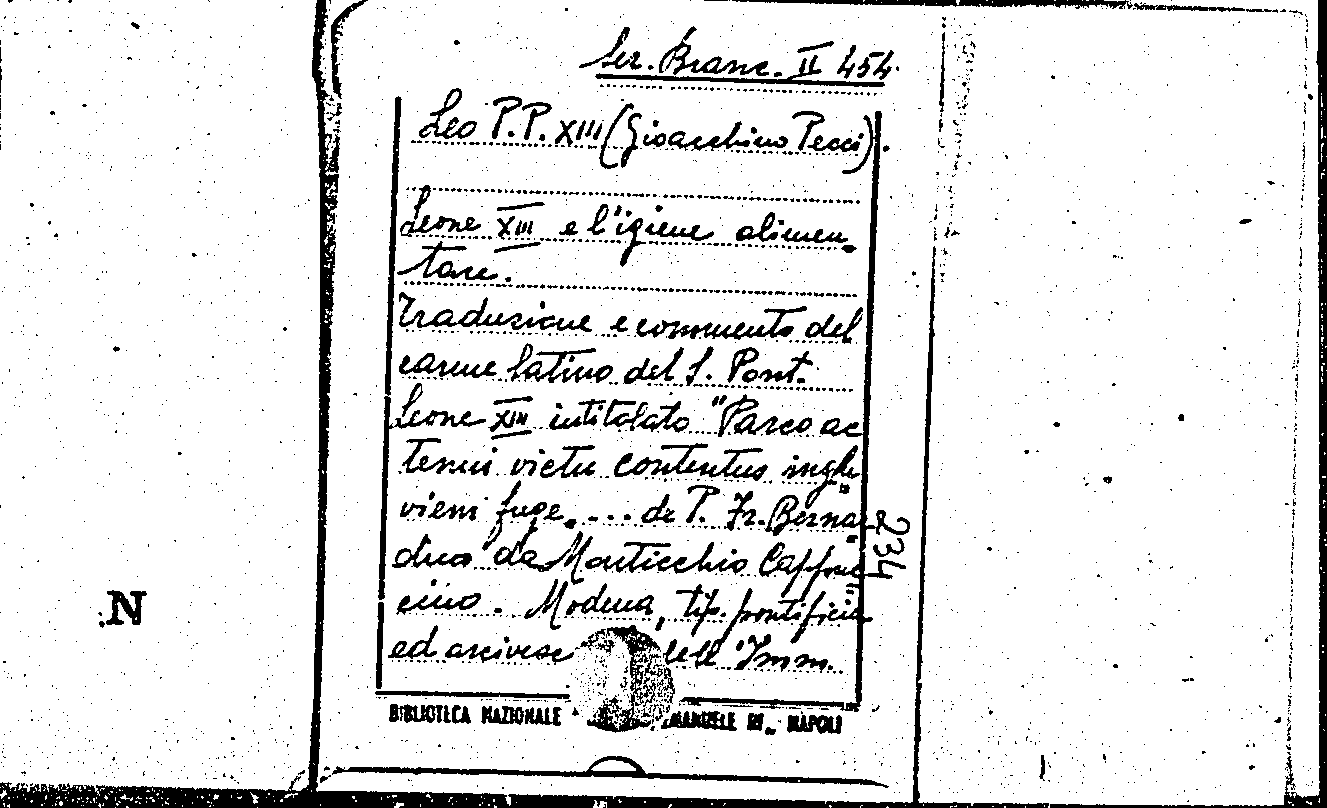 Ser. Branc. II 454.
Leo P.P. XIII (Gioacchino Pecci).
Leone XIII e l'igiene alimen-
tare.
Traduzione e commento del
carme latino del S. Pont.
Leone XIII intitolato "Parco ac
tenui victu contentus inglu
viem fuge„ ... de P. Fr. Berna-
dino da Monticchio Cappuc-
cino. Modena, tip. pontificia
ed arcivesc dell'Imm.
234
N
BIBLIOTECA NAZIONALE MANUELE III„ NAPOLI